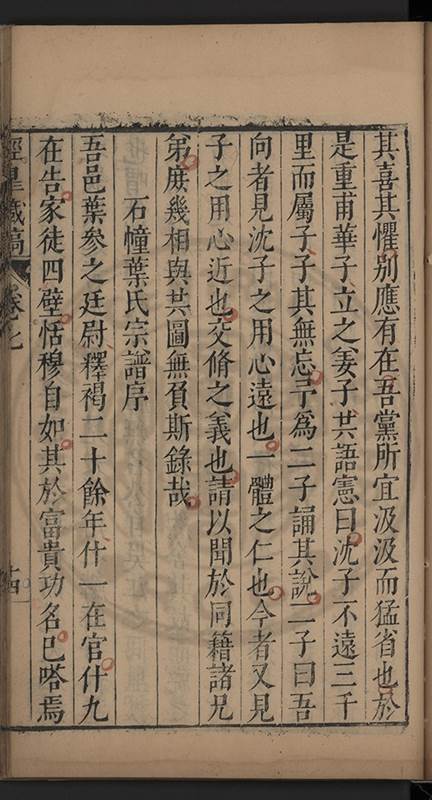 其喜其懼别應有在吾黨所宜汲汲而猛省也於
是重甫華子立之姜子共語憲曰沈子不遠三千
里而屬子子其無忘予為二子誦其說二子曰吾
向者見沈子之用心遠也一體之仁也今者又見
子之用心近也交脩之義也請以聞於同籍諸兄
弟庻幾相與共圖無負斯錄哉
石幢葉氏宗譜序
吾邑葉參之廷尉釋褐二十餘年什一在官什九
在告家徒四壁恬穆自如其於富貴功名已嗒焉
涇臯藏稿
卷七
十四